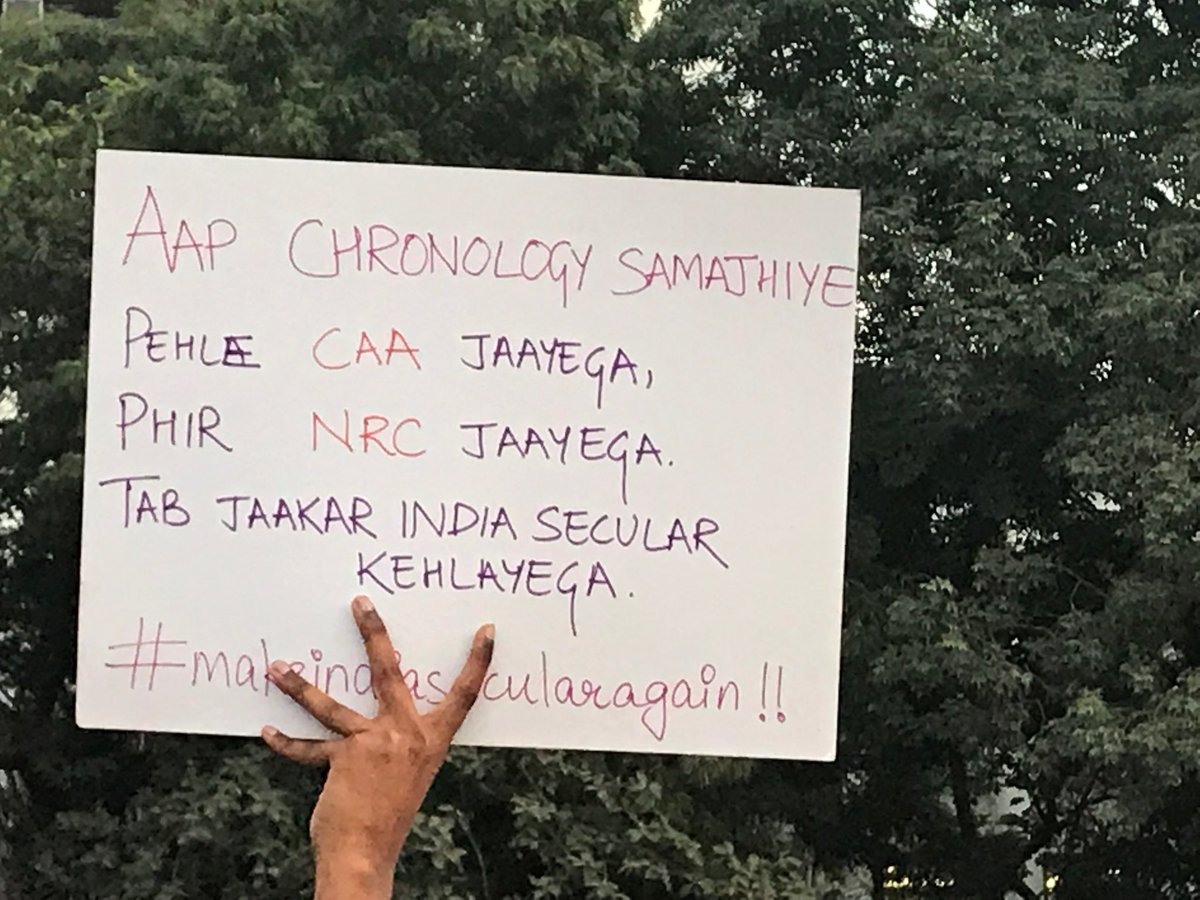 AAP CHRONOLOGY SAMAJHIYE
PEHLE CAA JAAYEGA,
PHIR NRC JAAYEGA.
TAB JAAKAR INDIA SECULAR
KEHLAYEGA.
#makeindiasecularagain!!